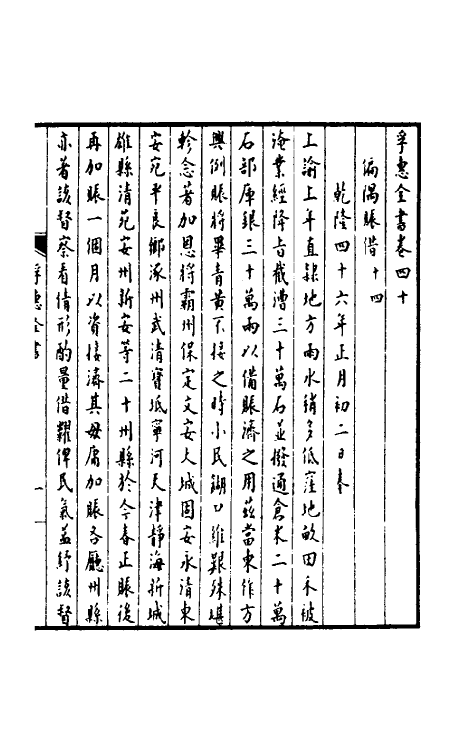 孚惠全書卷四十
偏隅賑借十四
乾隆四十六年正月初二日奉
上諭上年直隸地方雨水稍多低窪地畝田禾被
淹業經降旨截漕三十萬石並撥通倉米二十萬
石部庫銀三十萬兩以備賑濟之用茲當東作方
興例賑將畢青黃不接之時小民餬口維艱殊堪
軫念著加恩將霸州保定文安大城固安永清東
安宛平良鄉涿州武清寶坻寧河天津靜海新城
雄縣清苑安州新安等二十州縣於今春正賑後
再加賑一個月以資接濟其毋庸加賑各廳州縣
亦著該督察看情形酌量借糶俾民氣益紓該督
孚惠全書
一